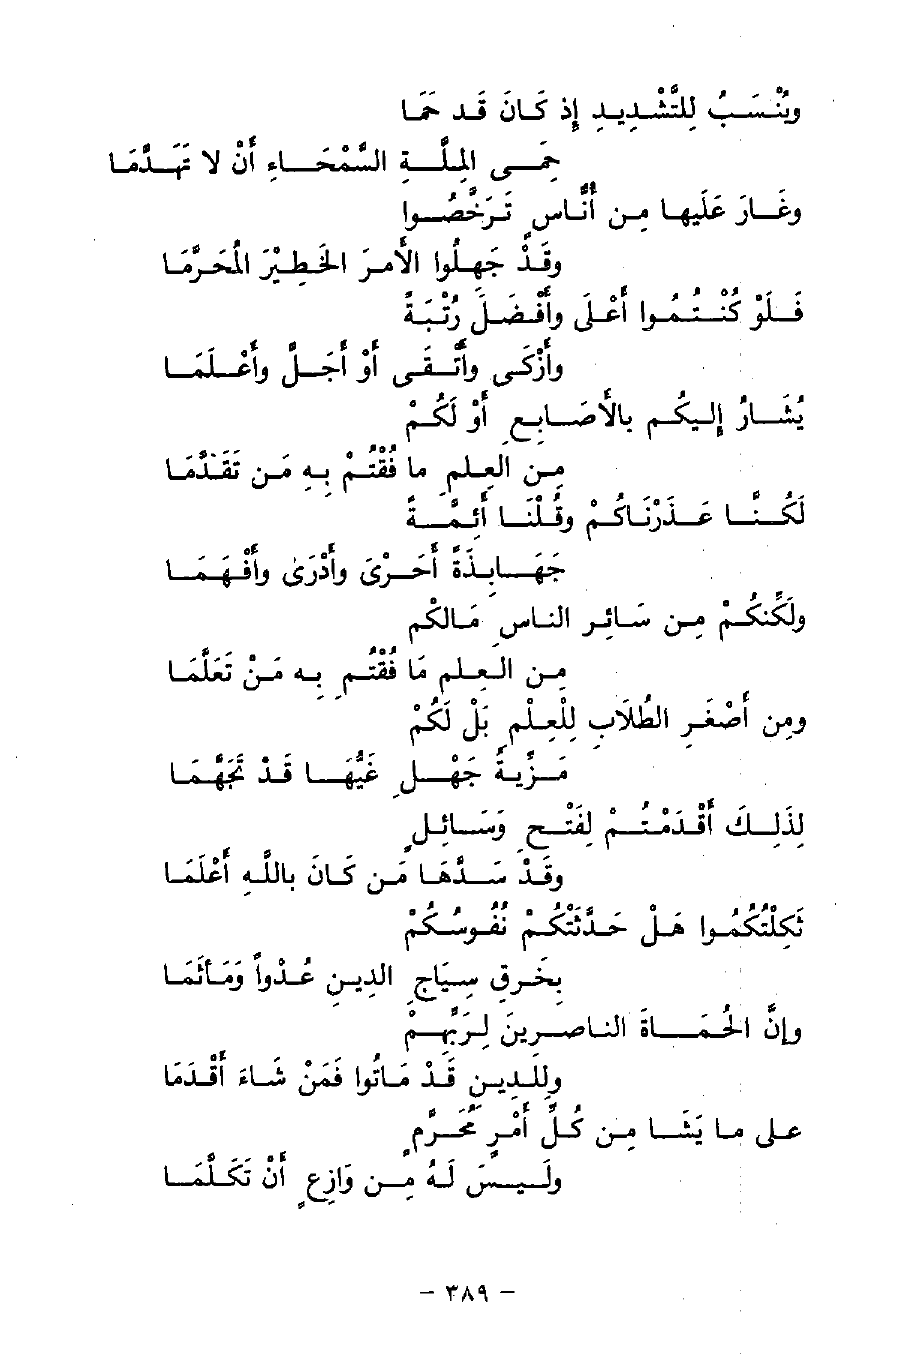 ويُنْسَبُ لِلتَّشْدِيدِ إِذ كَانَ قَد حَمَا
حِمَى المِلَّةِ السَّمْحَاءِ أَنْ لا تَهَدَّمَا
وغَارَ عَلَيها مِن أُنَّاسٍ تَرَخَّصُوا
وقَدْ جَهِلُوا الأمرَ الخَطِيْرَ المُحَرَّمَا
فَلَوْ كُنْتُمُوا أَعْلَى وأَفْضَلَ رُتْبَةً
وأَزْكَى وأَتْقَى أَوْ أَجَلَّ وأَعْلَمَا
يُشَارُ إِليكُم بِالأَصَابِعِ أَوْ لَكُمْ
مِن العِلمِ ما فُقْتُمْ بِهِ مَن تَقَدَّمَا
لَكُنَّا عَذَرْنَاكُمْ وقُلْنَا أَئِمَّةً
جَهَابِذَةً أَحَرْىَ وأَدْرَى وأَفْهَمَا
ولَكِنَّكُمْ مِن سَائِرِ الناسِ مَالَكُم
مِن العِلمِ مَا فُقْتُم بِهِ مَنْ تَعَلَّمَا
ومِن أَصْغَرِ الطُّلَابِ لِلْعِلْمِ بَلْ لَكُمْ
مَزِيَّةُ جَهْلٍ غَيُّهَا قَدْ تَجَهَّمَا
لِذَلِكَ أَقْدَمْتُمْ لِفَتْحِ وَسَائِلٍ
وقَدْ سَدَّهَا مَن كَانَ بِاللهِ أَعْلَمَا
ثَكِلْتُكُمُوا هَلْ حَدَّثَتْكُمْ نُفُوسُكُمْ
بِخَرقِ سِيَاجِ الدِينِ عُدْواً وَمَأْثَمَا
وإِنَّ الحُمَاةَ الناصِرِينَ لِرَبِّهِمْ
ولِلدِينِ قَدْ مَاتُوا فَمَنْ شَاءَ أَقْدَمَا
على ما يَشَا مِن كُلِّ أَمْرٍ مُحَرَّمٍ
ولَيسَ لَهُ مِن وَازِعٍ أَنْ تَكَلَّمَا
– ٣٨٩ –